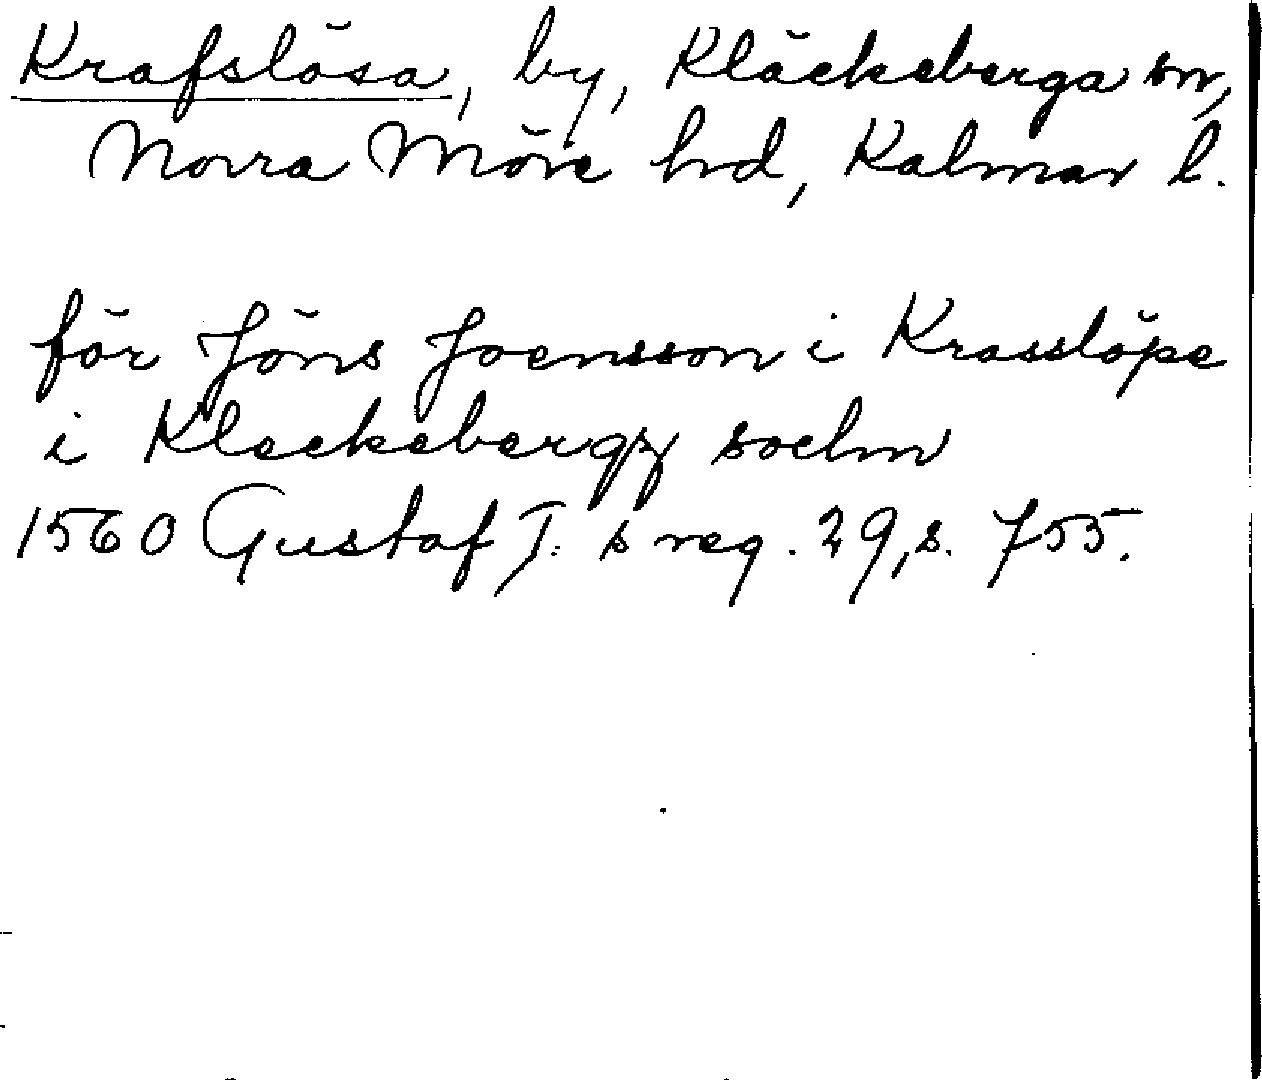 Krafslösa, by, Kläckeberga sn,
Norra Möre hrd, Kalmar l.
för Jöns Joensson i Krasslöpe
i Kleckebergz sockn
1560 Gustaf I: s reg. 29, s. 755.